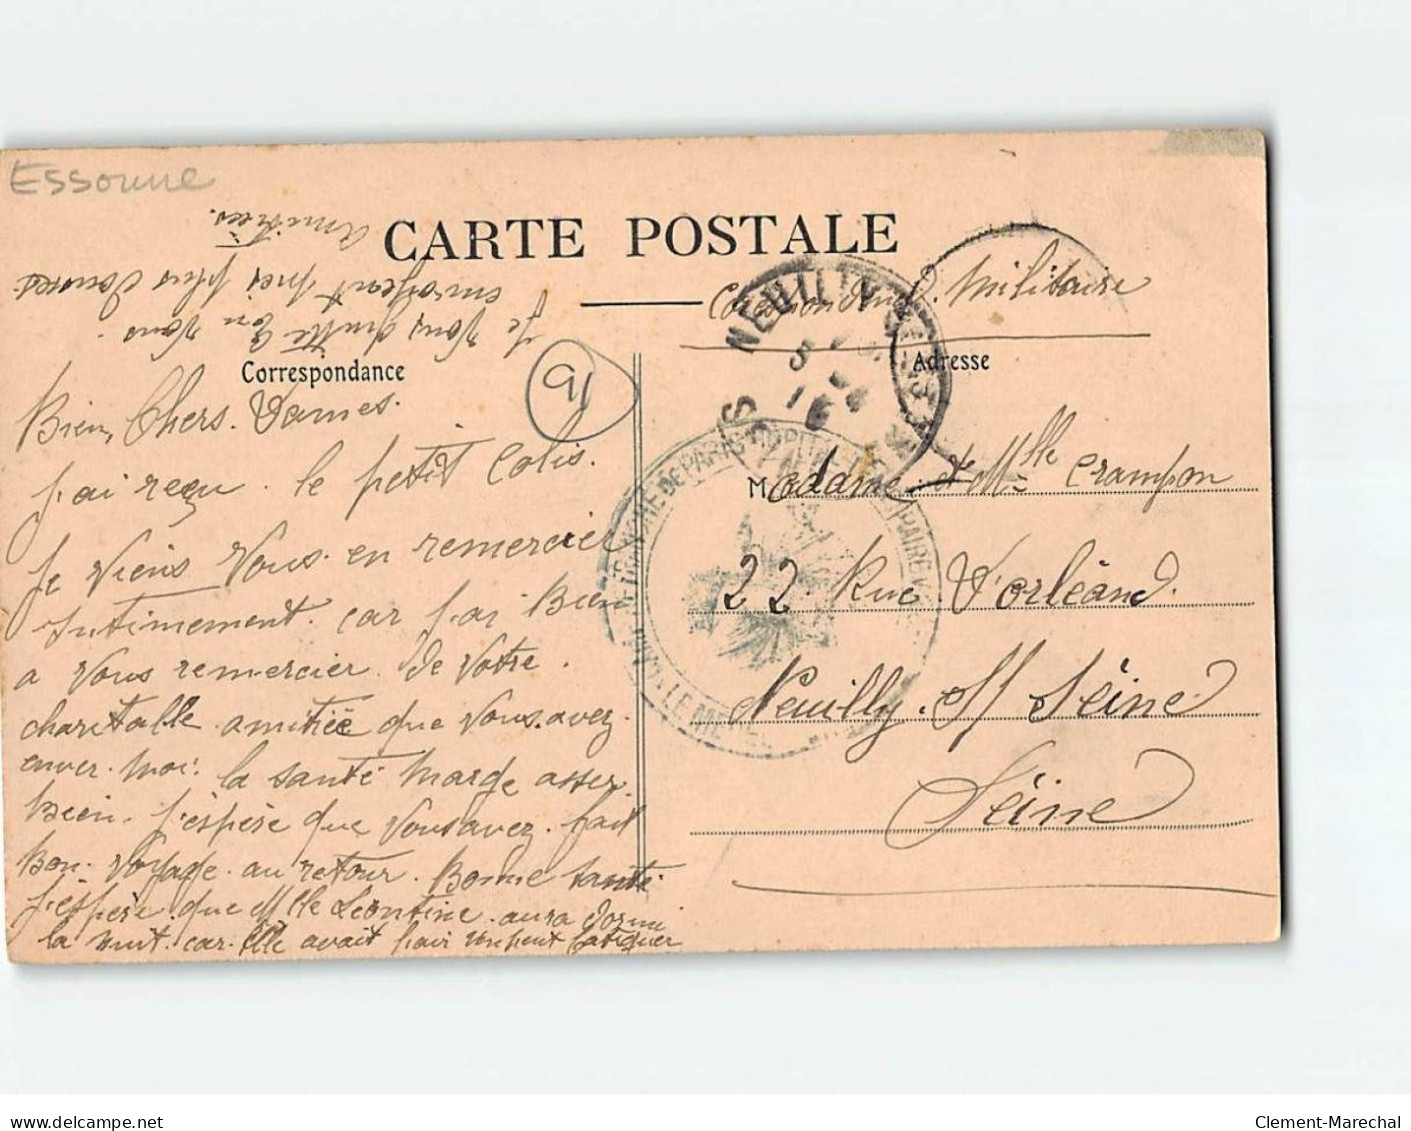 Essonne
CARTE POSTALE
Militaire
Correspondance
Adresse
91
NEUILLY
Bien Chers. Dames.
j'ai reçu. le petit Colis.
Je Viens Vous. en remercier
Intimement. car j'ai Bien
a Vous remercier. de Votre.
charitalle amitiée que Vous. avez.
enver. moi. la santé marge asser.
Bien. j'espère que Vous avez. fait
Bon. Voyage. au retour. Bonne santé
j'espère. que Mlle Léontine. aura dormi
la nuit. car. Elle avait l'air un peut fatiguer
Je Vous quitte En Vous.
envoyent mes plus Douses
Amitiées.
Madame et Mlle Crampon
22. Rue D'orléand.
Neuilly. S/ Seine
Seine
www.delcampe.net
Clement-Marechal